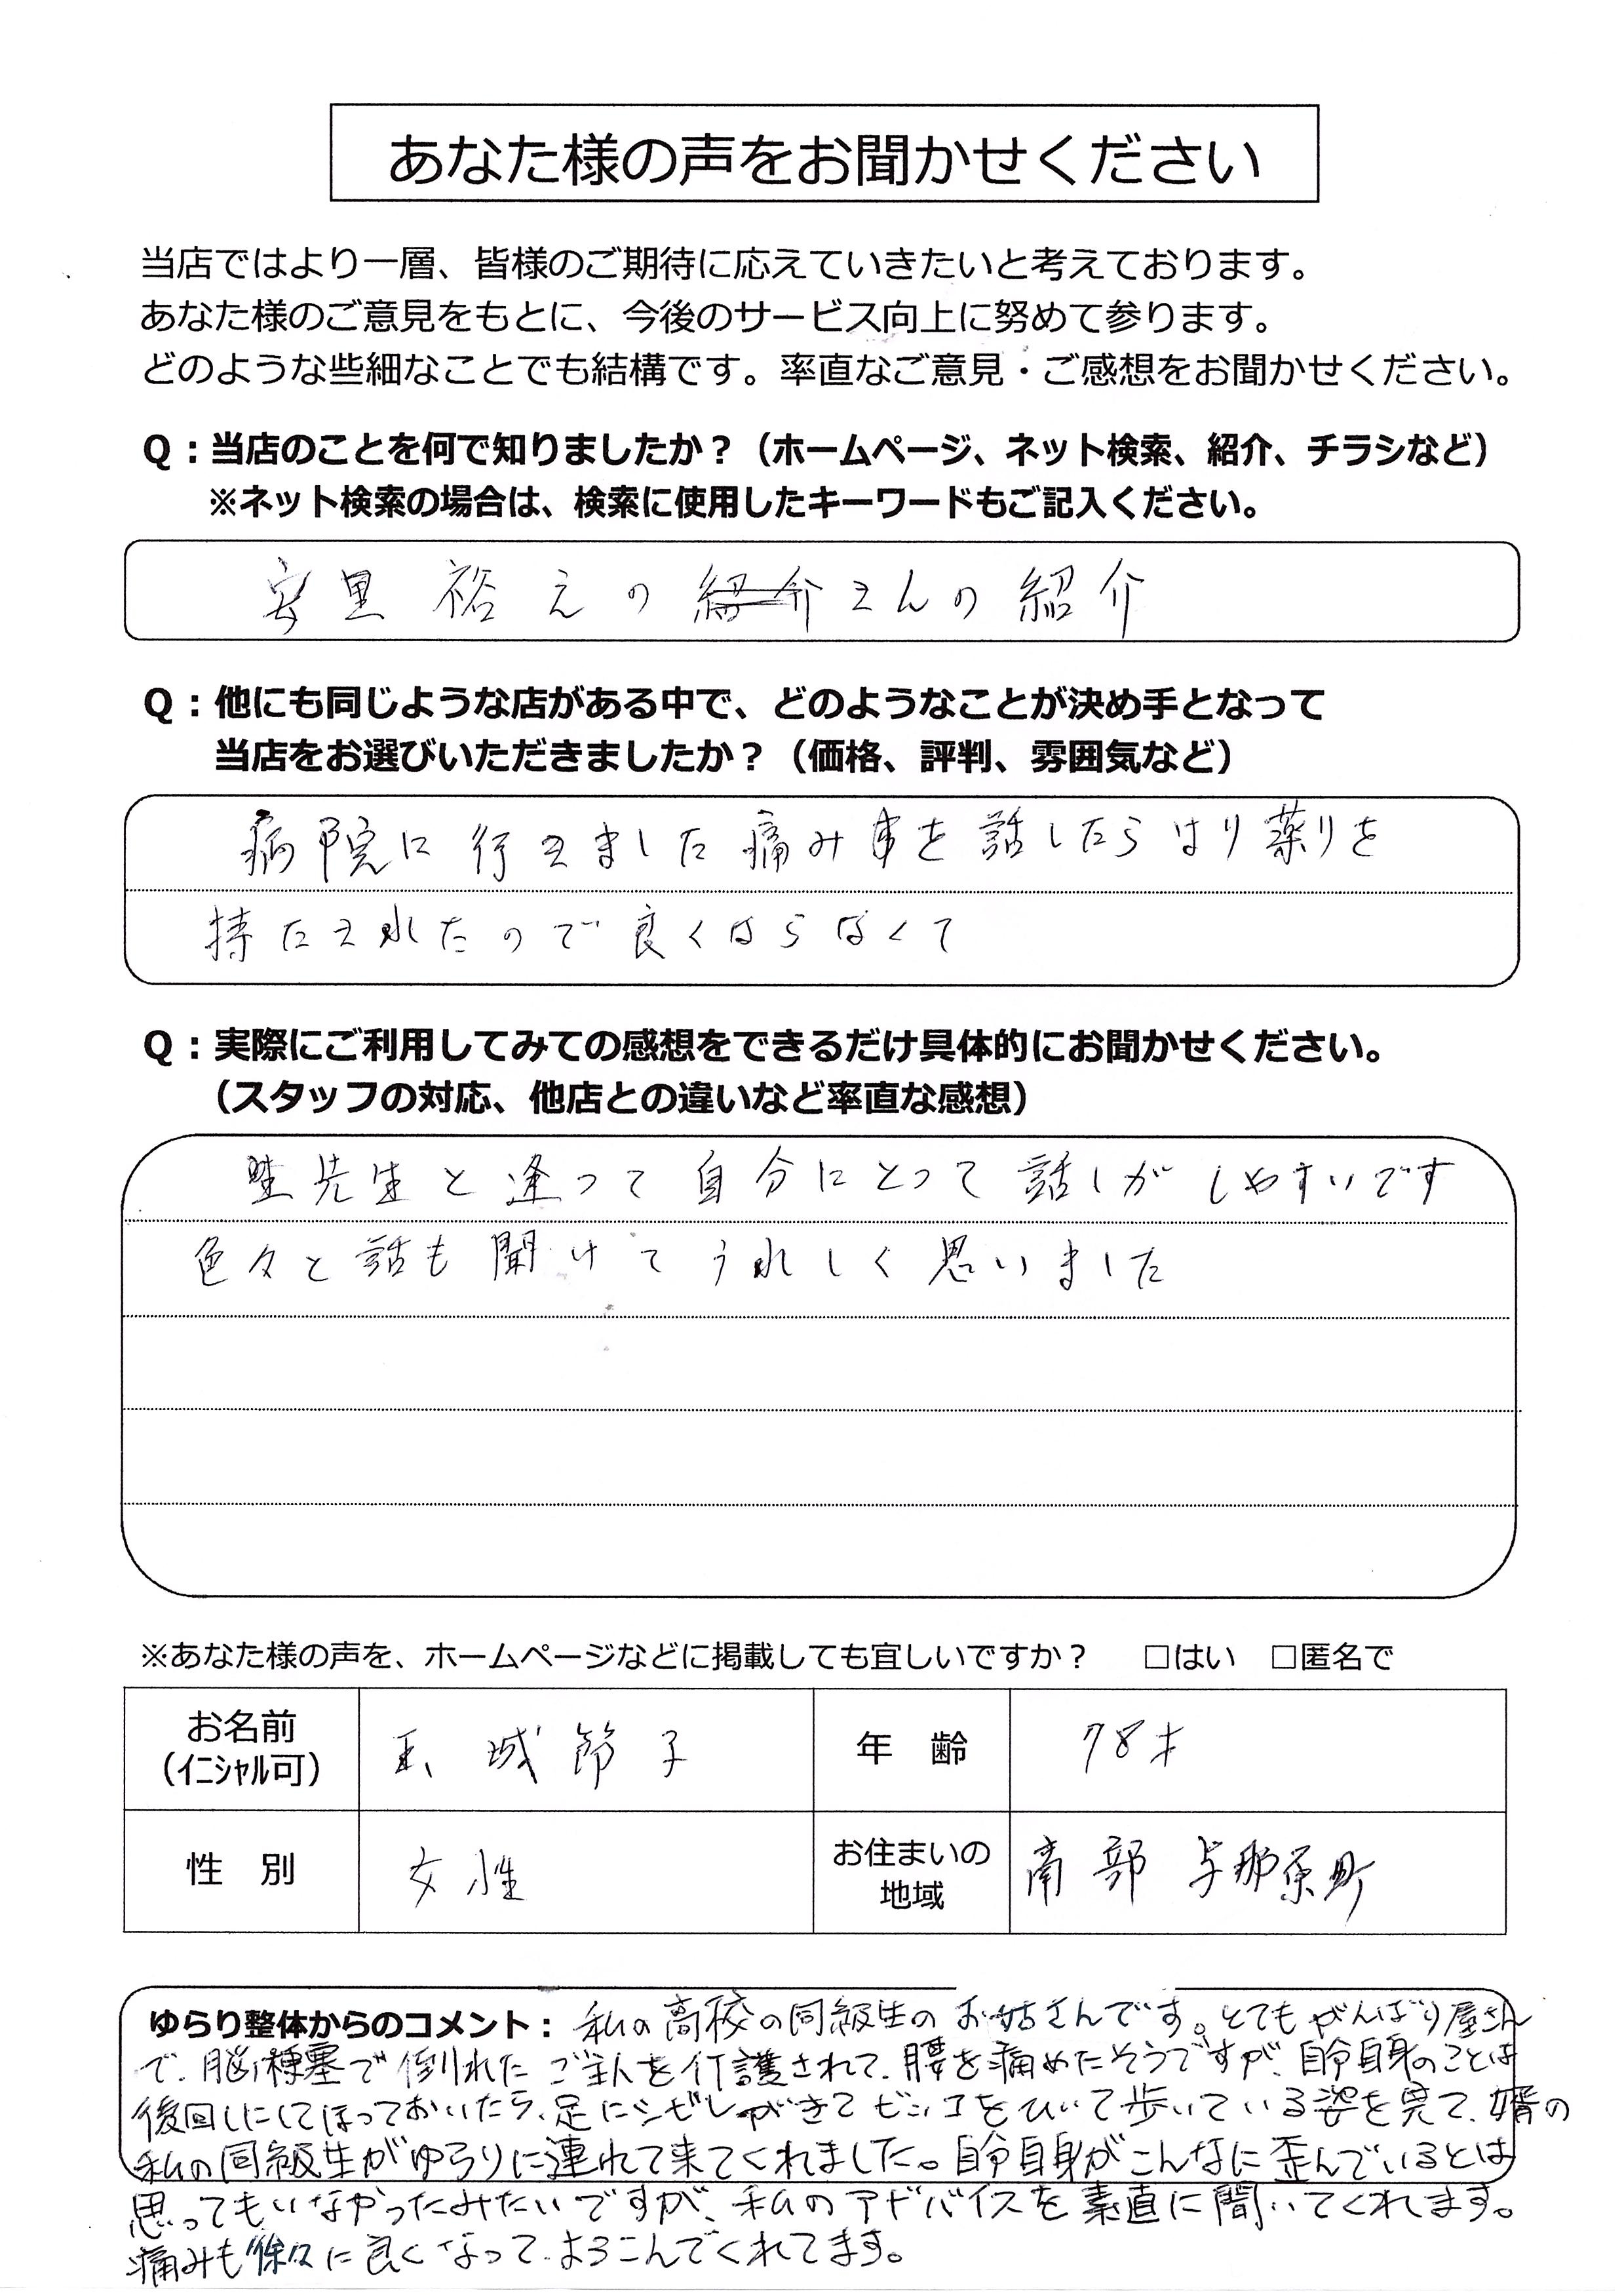 あなた様の声をお聞かせください
当店ではより一層、皆様のご期待に応えていきたいと考えております。
あなた様のご意見をもとに、今後のサービス向上に努めて参ります。
どのような些細なことでも結構です。率直なご意見・ご感想をお聞かせください。
Q：当店のことを何で知りましたか？（ホームページ、ネット検索、紹介、チラシなど）
※ネット検索の場合は、検索に使用したキーワードもご記入ください。
安里 裕えの 紹介さんの 紹介
Q：他にも同じような店がある中で、どのようなことが決め手となって
当店をお選びいただきましたか？（価格、評判、雰囲気など）
病院に行きました痛み事を話したらはり薬りを
持たされたので良くはらなくて
Q：実際にご利用してみての感想をできるだけ具体的にお聞かせください。
（スタッフの対応、他店との違いなど率直な感想）
先生と逢って自分にとって話しがしやすいです
色々と話も聞けてうれしく思いました
※あなた様の声を、ホームページなどに掲載しても宜しいですか？　□はい　□匿名で
お名前
（イニシャル可）
玉城節子
年　齢
78才
性　別
女性
お住まいの
地域
南部 与那原町
ゆらり整体からのコメント：私の高校の同級生のお姑さんです。とてもがんばり屋さん
で、脳梗塞で倒れたご主人を介護されて、腰を痛めたそうですが、自分自身のことは
後回しにしてほっておいたら、足にシビレがきてビッコをひいて歩いている姿を見て、婿の
私の同級生がゆらりに連れて来てくれました。自分自身がこんなに歪んでいるとは
思ってもいなかったみたいですが、私のアドバイスを素直に聞いてくれます。
痛みも徐々に良くなって、よろこんでくれてます。